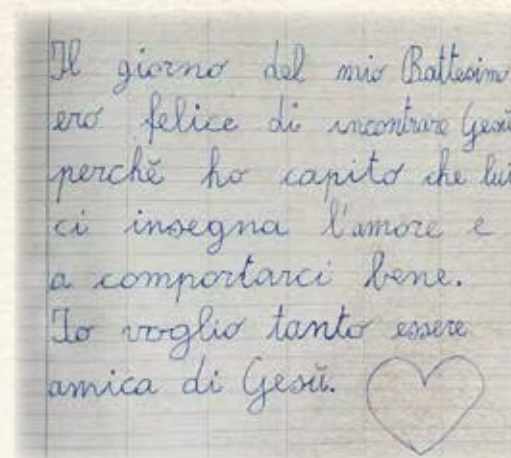 Il giorno del mio Battesimo
ero felice di incontrare Gesù
perchè ho capito che lui
ci insegna l'amore e
a comportarci bene.
Io voglio tanto essere
amica di Gesù.